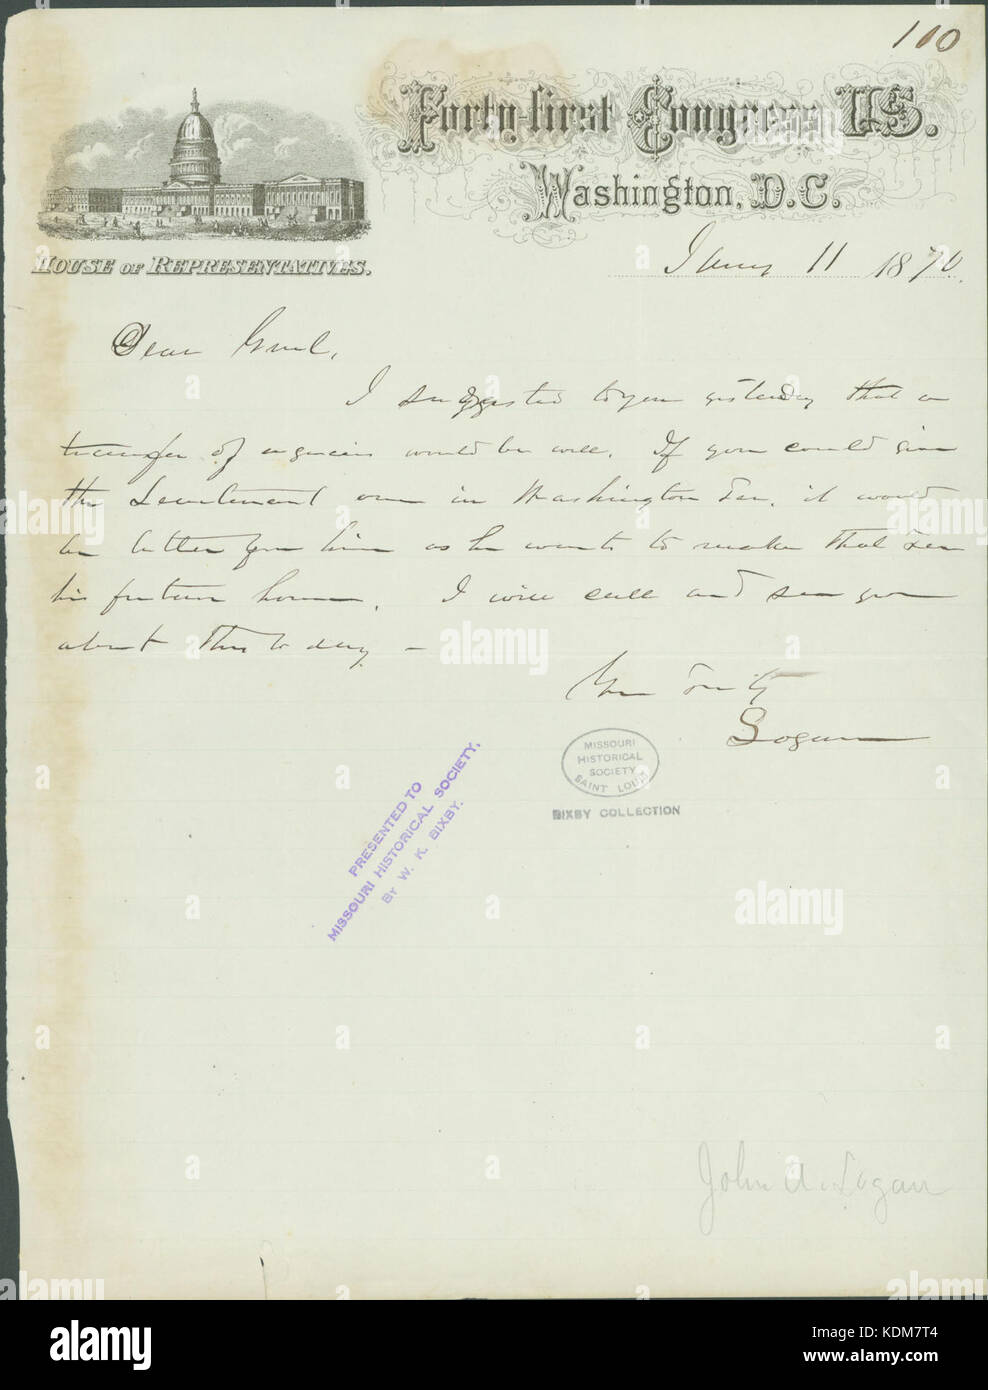 100
Forty-first Congress, U.S.
Washington, D.C.
House of Representatives.
Jany 11 1870.
Dear Genl,
I suggested to you yesterday that a
transfer of agencies would be well. If you could give
the Lieutenant one in Washington Ter. it would
be better for him as he wants to make that Ter
his future home. I will call and see you
about this to day –
Yours Truly
Logan
MISSOURI
HISTORICAL
SOCIETY
SAINT LOUIS
BIXBY COLLECTION
PRESENTED TO
MISSOURI HISTORICAL SOCIETY,
BY W. K. BIXBY.
John A. Logan
alamy
alamy
Image ID: KDM7T4
www.alamy.com